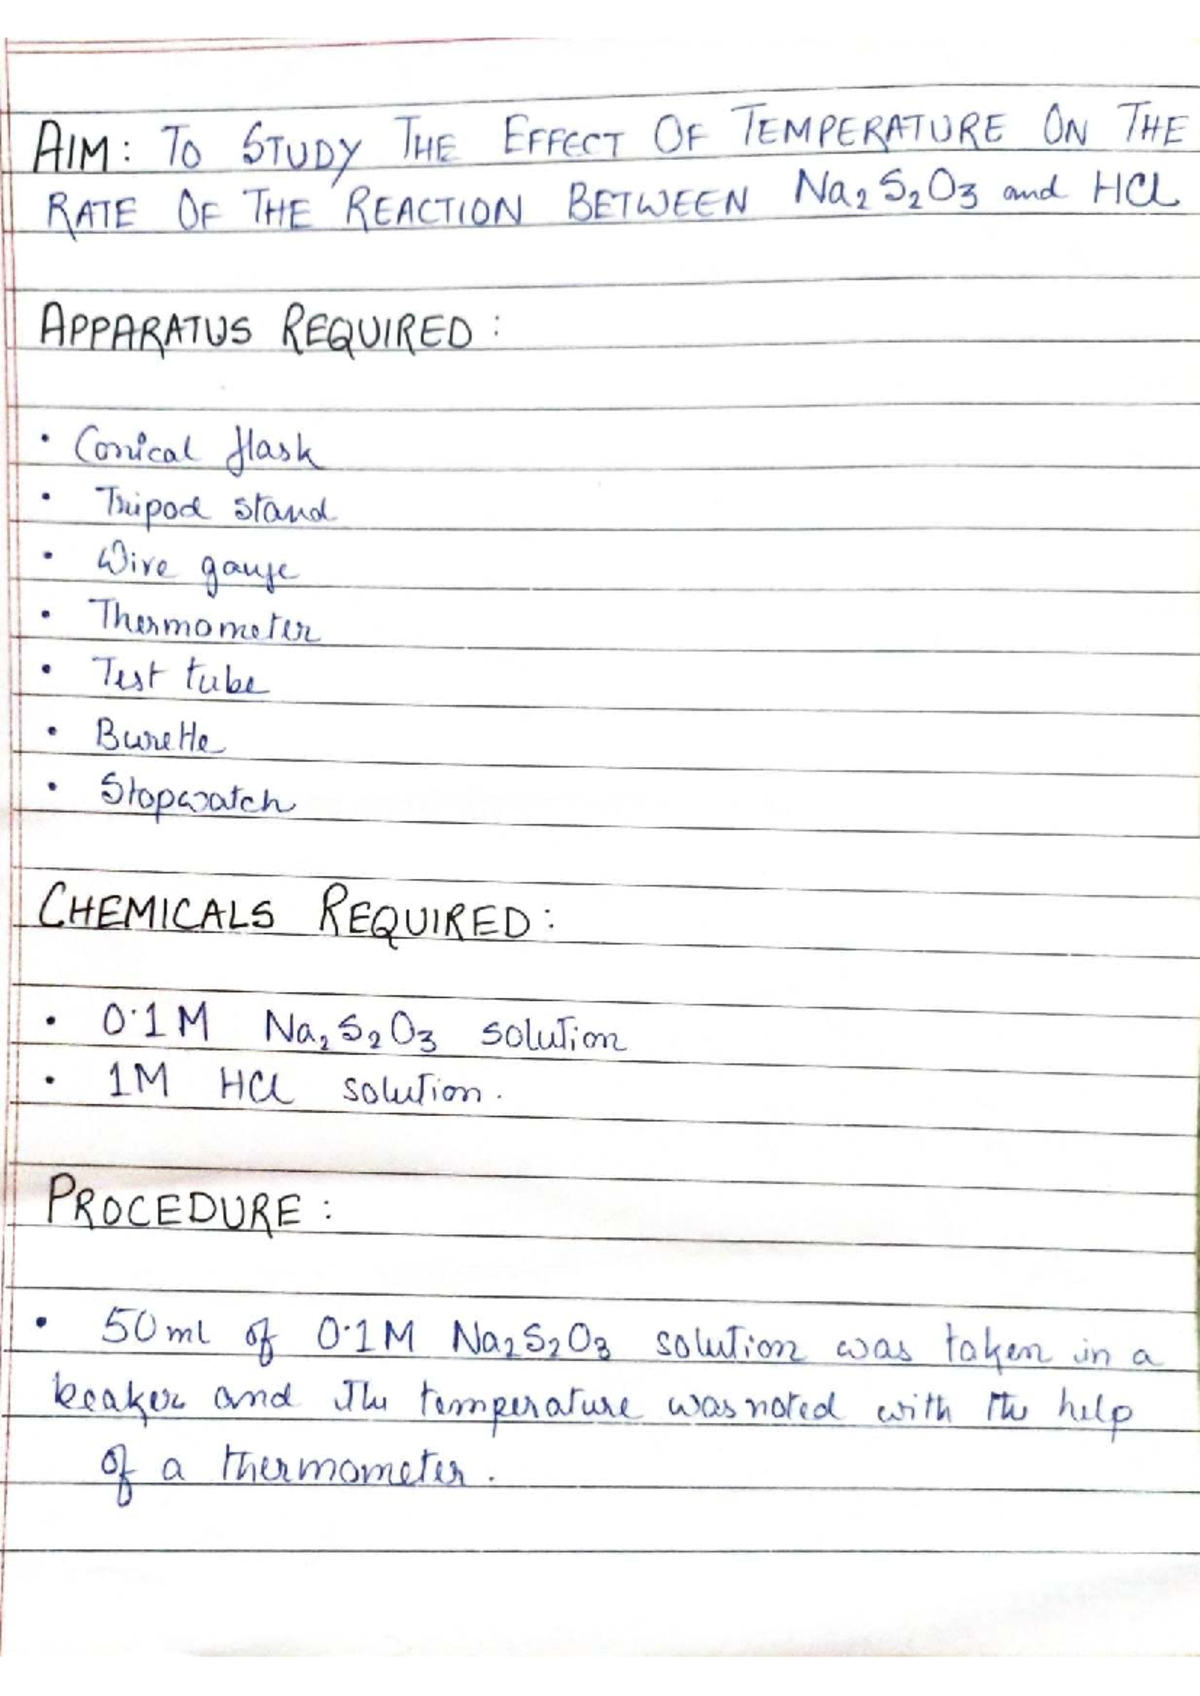 AIM: TO STUDY THE EFFECT OF TEMPERATURE ON THE
RATE OF THE REACTION BETWEEN Na₂S₂O₃ and HCl
APPARATUS REQUIRED:
• Conical flask
• Tripod stand
• Wire gauze
• Thermometer
• Test tube
• Burette
• Stopwatch
CHEMICALS REQUIRED:
• 0·1M Na₂S₂O₃ solution
• 1M HCl solution.
PROCEDURE:
• 50ml of 0·1M Na₂S₂O₃ solution was taken in a
beaker and the temperature was noted with the help
of a thermometer.